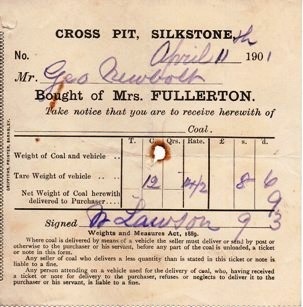 CROSS PIT, SILKSTONE,
No. April 11th 1901
Mr. Geo Newbolt
Bought of Mrs. FULLERTON.
Take notice that you are to receive herewith of
Coal.
T. C. Qrs. £ s. d.
Weight of Coal and vehicle ..
Tare Weight of vehicle .. 12 8 6
Net Weight of Coal herewith
delivered to Purchaser... 9
Signed Lawson 9 3
Weights and Measures Act, 1889.
Where coal is delivered by means of a vehicle the seller must deliver or send by post or
otherwise to the purchaser or his servant, before any part of the coal is unloaded, a ticket
or note in this form.
Any seller of coal who delivers a less quantity than is stated in this ticket or note is
liable to a fine.
Any person attending on a vehicle used for the delivery of coal, who, having received
a ticket or note for delivery to the purchaser, refuses or neglects to deliver it to the
purchaser or his servant, is liable to a fine.